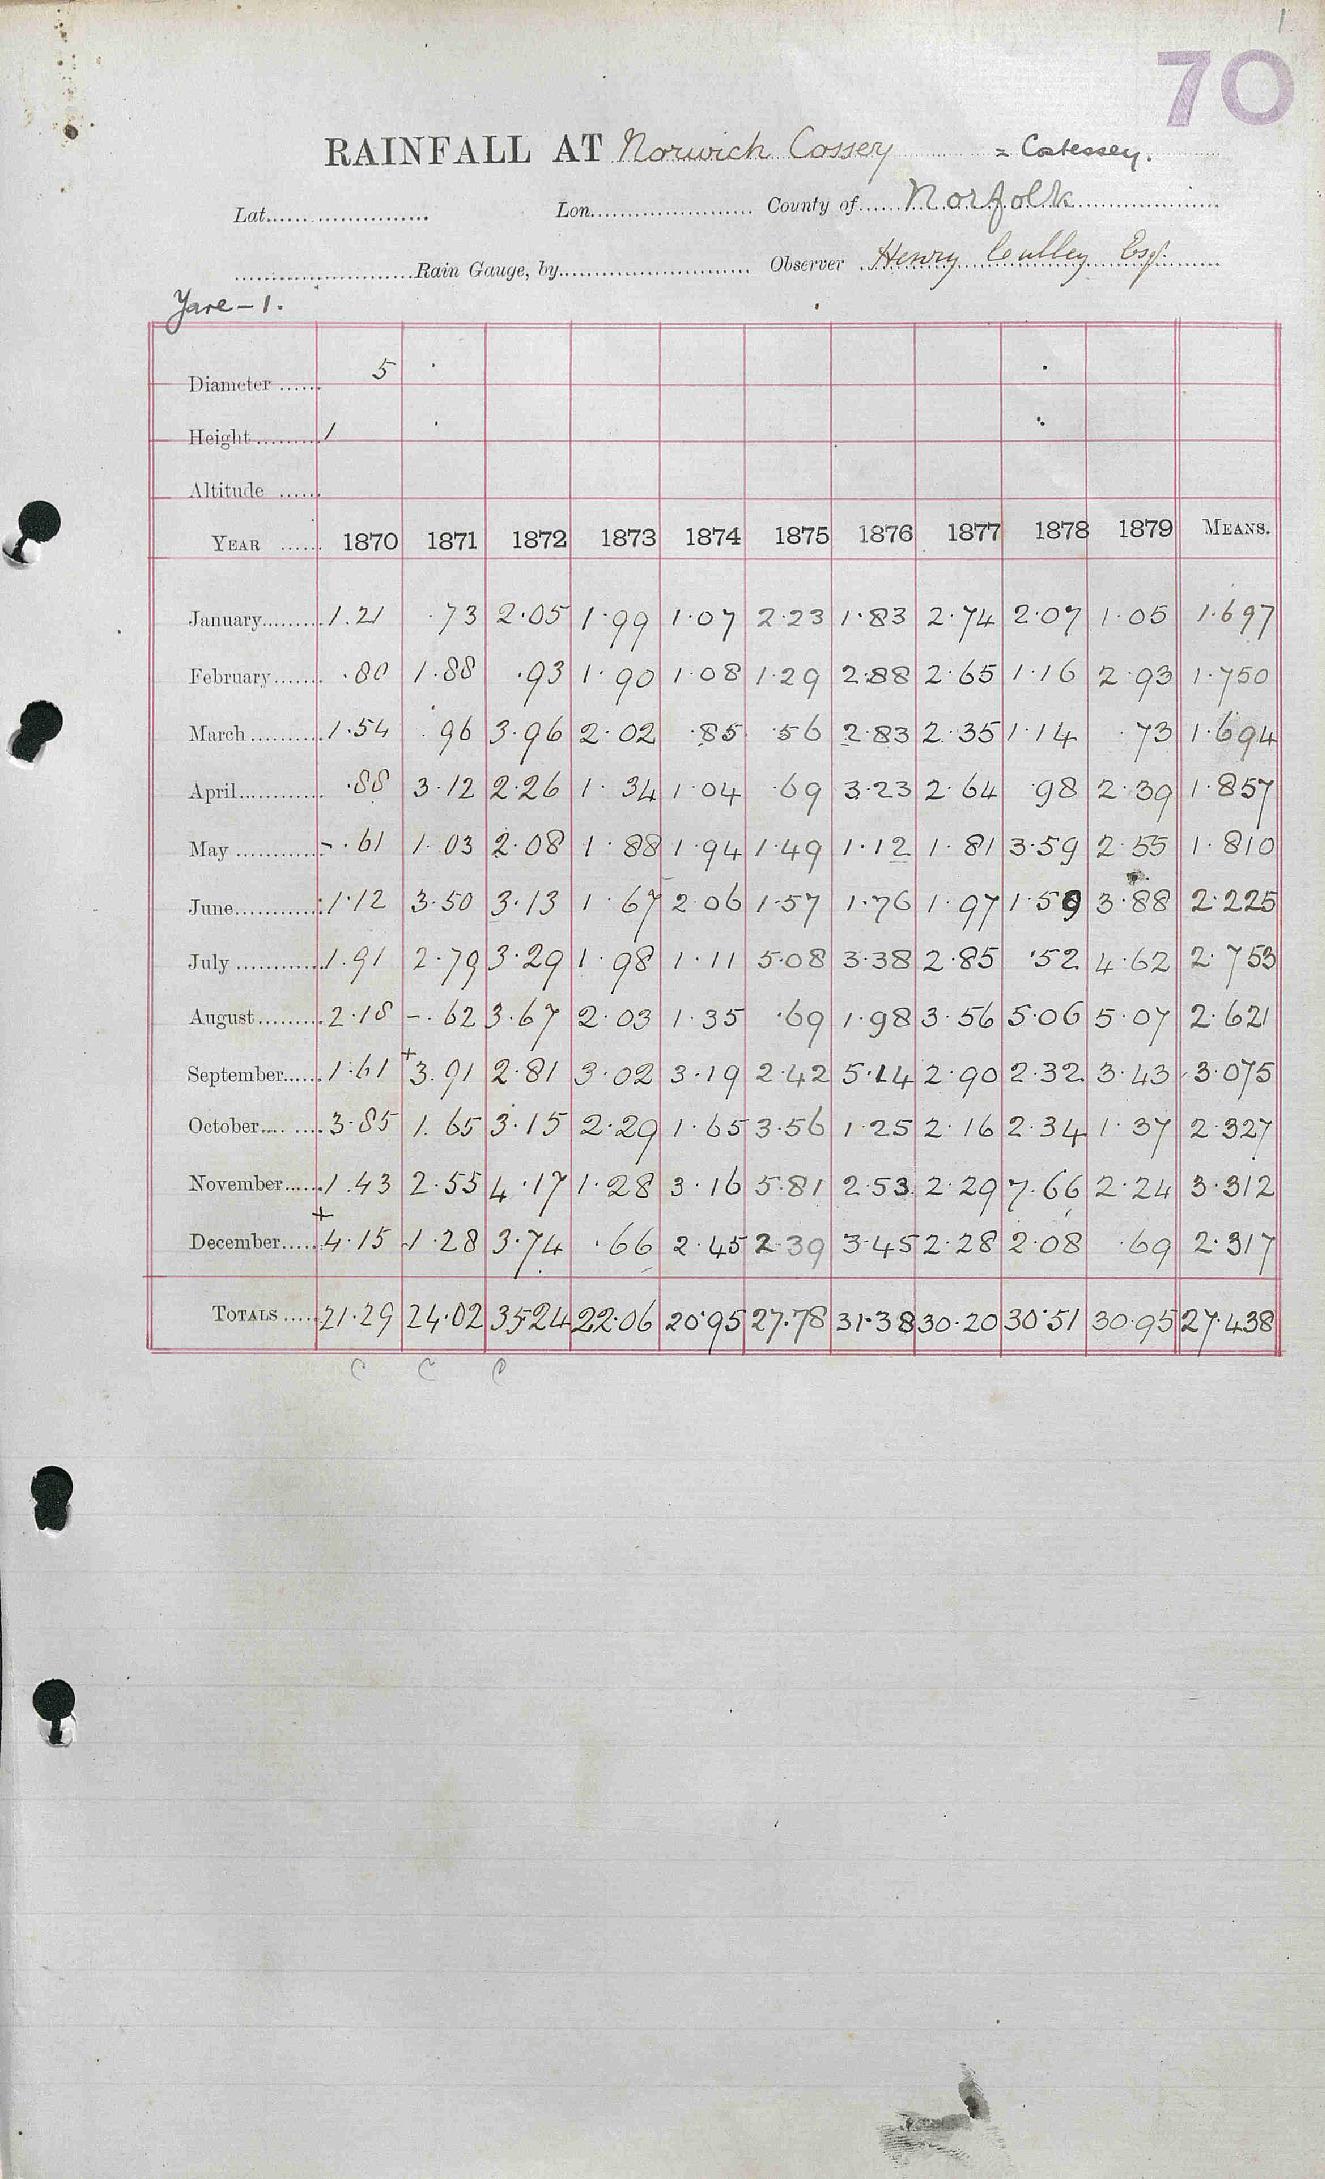 1
70
RAINFALL AT Norwich Cossey = Costessey.
Lat. Lon. County of Norfolk
Rain Gauge, by Observer Henry Culley Esq.
Yare - 1.
Diameter 5
Height 1
Altitude
YEAR 1870 1871 1872 1873 1874 1875 1876 1877 1878 1879 MEANS.
January 1.21 .73 2.05 1.99 1.07 2.23 1.83 2.74 2.07 1.05 1.697
February .80 1.88 .93 1.90 1.08 1.29 2.88 2.65 1.16 2.93 1.750
March 1.54 .96 3.96 2.02 .85 .56 2.83 2.35 1.14 .73 1.694
April .88 3.12 2.26 1.34 1.04 .69 3.23 2.64 .98 2.39 1.857
May - .61 1.03 2.08 1.88 1.94 1.49 1.12 1.81 3.59 2.55 1.810
June 1.12 3.50 3.13 1.67 2.06 1.57 1.76 1.97 1.59 3.88 2.225
July 1.91 2.79 3.29 1.98 1.11 5.08 3.38 2.85 .52 4.62 2.753
August 2.18 - .62 3.67 2.03 1.35 .69 1.98 3.56 5.06 5.07 2.621
September 1.61 +3.91 2.81 3.02 3.19 2.42 5.14 2.90 2.32 3.43 3.075
October 3.85 1.65 3.15 2.29 1.65 3.56 1.25 2.16 2.34 1.37 2.327
November 1.43 2.55 4.17 1.28 3.16 5.81 2.53 2.29 7.66 2.24 3.312
December +4.15 1.28 3.74 .66 2.45 2.39 3.45 2.28 2.08 .69 2.317
TOTALS 21.29 24.02 35.24 22.06 20.95 27.78 31.38 30.20 30.51 30.95 27.438
C C C